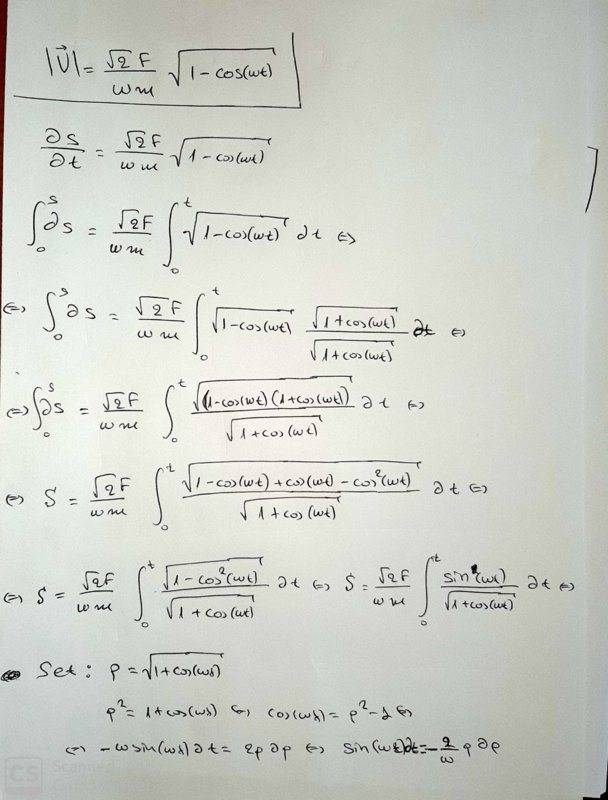 |U⃗| = √2 F / ωm √(1 - cos(ωt))
∂s/∂t = √2 F / ωm √(1 - cos(ωt))
∫₀ˢ ∂s = √2 F / ωm ∫₀ᵗ √(1 - cos(ωt)) ∂t ⇔
⇔ ∫₀ˢ ∂s = √2 F / ωm ∫₀ᵗ √(1 - cos(ωt)) √(1 + cos(ωt)) / √(1 + cos(ωt)) ∂t ⇔
⇔ ∫₀ˢ ∂s = √2 F / ωm ∫₀ᵗ √((1 - cos(ωt)) (1 + cos(ωt))) / √(1 + cos(ωt)) ∂t ⇔
⇔ S = √2 F / ωm ∫₀ᵗ √(1 - cos(ωt) + cos(ωt) - cos²(ωt)) / √(1 + cos(ωt)) ∂t ⇔
⇔ S = √2 F / ωm ∫₀ᵗ √(1 - cos²(ωt)) / √(1 + cos(ωt)) ∂t ⇔ S = √2 F / ωm ∫₀ᵗ sin(ωt) / √(1 + cos(ωt)) ∂t ⇔
Set : ρ = √(1 + cos(ωt))
ρ² = 1 + cos(ωt) ⇔ cos(ωt) = ρ² - 1 ⇔
⇔ -ω sin(ωt) ∂t = 2ρ ∂ρ ⇔ sin(ωt) ∂t = -2/ω ρ ∂ρ
CS Scanned